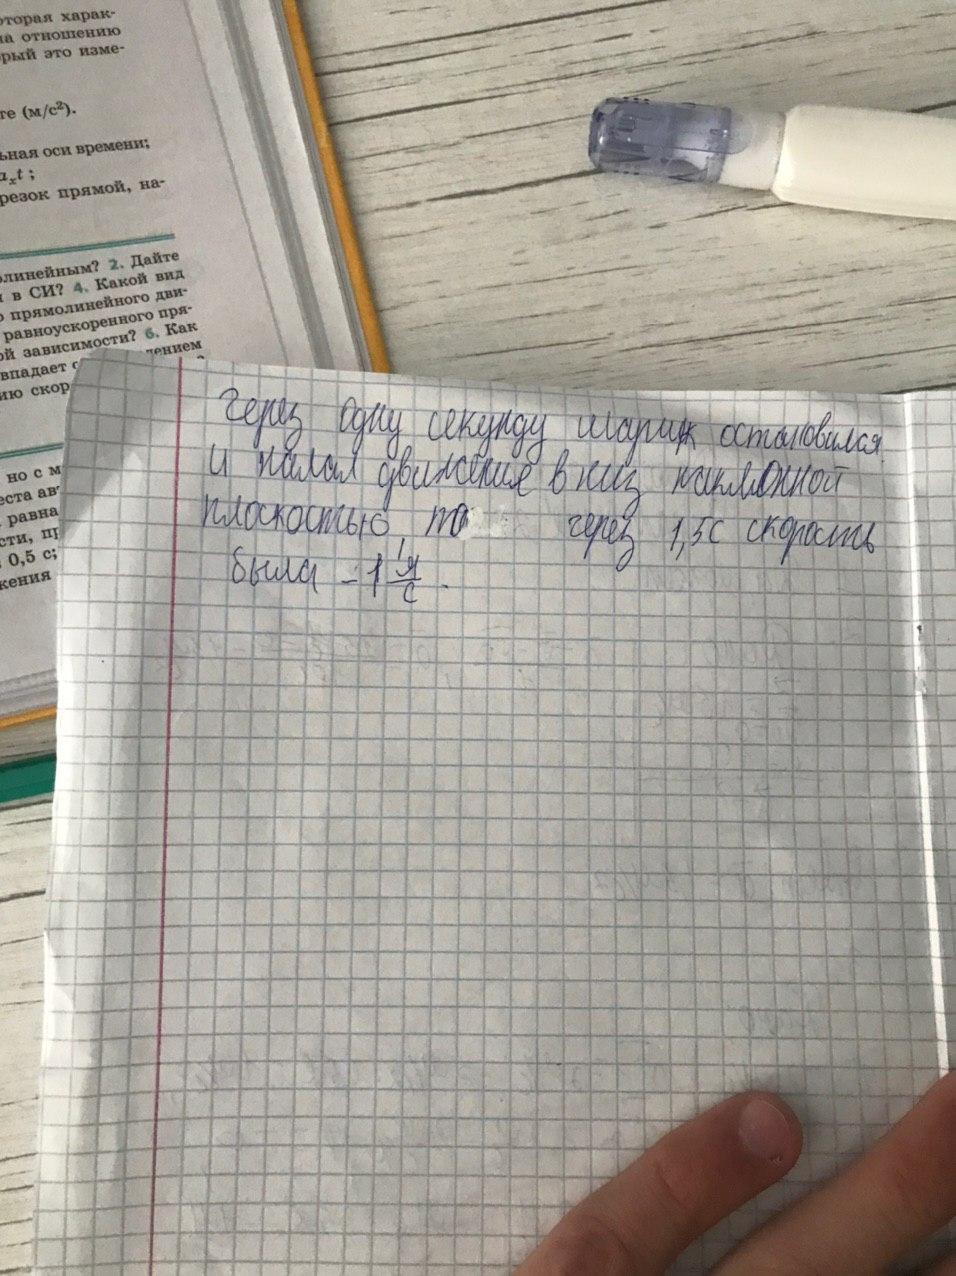 оторая харак-
на отношению
рый это изме-
те (м/с²).
ьная оси времени;
aₓt;
резок прямой, на-
олинейным? 2. Дайте
и в СИ? 4. Какой вид
о прямолинейного дви-
равноускоренного пря-
ой зависимости? 6. Как
впадает с
лением
ию скор
но с м
еста ав
равна
сти, п
0,5 с;
жения
Через одну секунду шарик остановился
и начал движение в низ наклонной
плоскостью, то через 1,5с скорость
была -1 м/с.